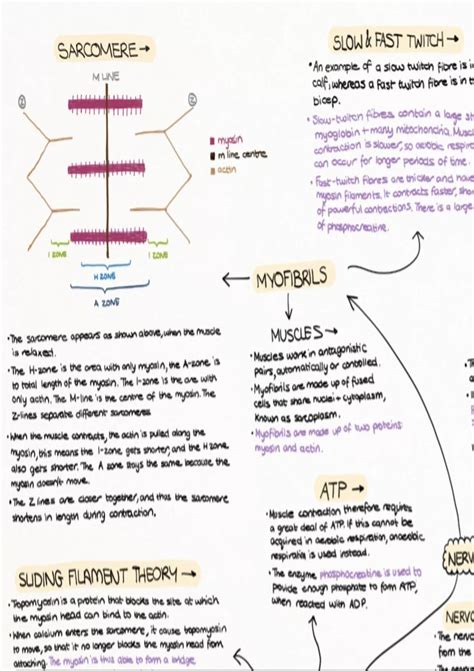 SARCOMERE →
M LINE
Z
Z
myosin
m line centre
actin
I ZONE
I ZONE
H ZONE
A ZONE
• The sarcomere appears as shown above, when the muscle
is relaxed.
• The H-zone is the area with only myosin, the A-zone is
to total length of the myosin. The I-zone is the are with
only actin. The M-line is the centre of the myosin. The
Z-lines separate different sarcomeres
• When the muscle contracts, the actin is pulled along the
myosin, this means the I-zone gets shorter, and the H zone
also gets shorter. The A zone stays the same because the
myosin doesn't move.
• The Z lines are closer together, and thus the sarcomere
shortens in length during contraction.
SLIDING FILAMENT THEORY →
• Topomyosin is a protein that blocks the site at which
the myosin head can bind to the actin.
• When calcium enters the sarcomere, it cause topomyosin
to move, so that it no longer blocks the myosin head from
attaching. The myosin is thus able to form a bridge
SLOW & FAST TWITCH →
• An example of a slow twitch fibre is in
calf, whereas a fast twitch fibre is in t
bicep.
• Slow-twitch fibres contain a large st
myoglobin + many mitochondria. Musc
contraction is slower, so aerobic respira
can occur for longer periods of time.
• Fast-twitch fibres are thicker and have
myosin filaments. It contracts faster, sho
of powerful contractions. There is a large
of phosphocreatine.
MYOFIBRILS
MUSCLES →
• Muscles work in antagonistic
pairs, automatically or controlled.
• Myofibrils are made up of fused
cells that share nuclei + cytoplasm,
known as sarcoplasm.
• Myofibrils are made up of two proteins
myosin and actin.
ATP →
• Muscle contraction therefore requires
a great deal of ATP. If this cannot be
acquired in aerobic respiration, anaerobic
respiratio is used instead.
• The enzyme phosphocreatine is used to
provide enough phosphate to form ATP,
when reached with ADP.
NERV
NERVO
• The nervo
from the
• The ne